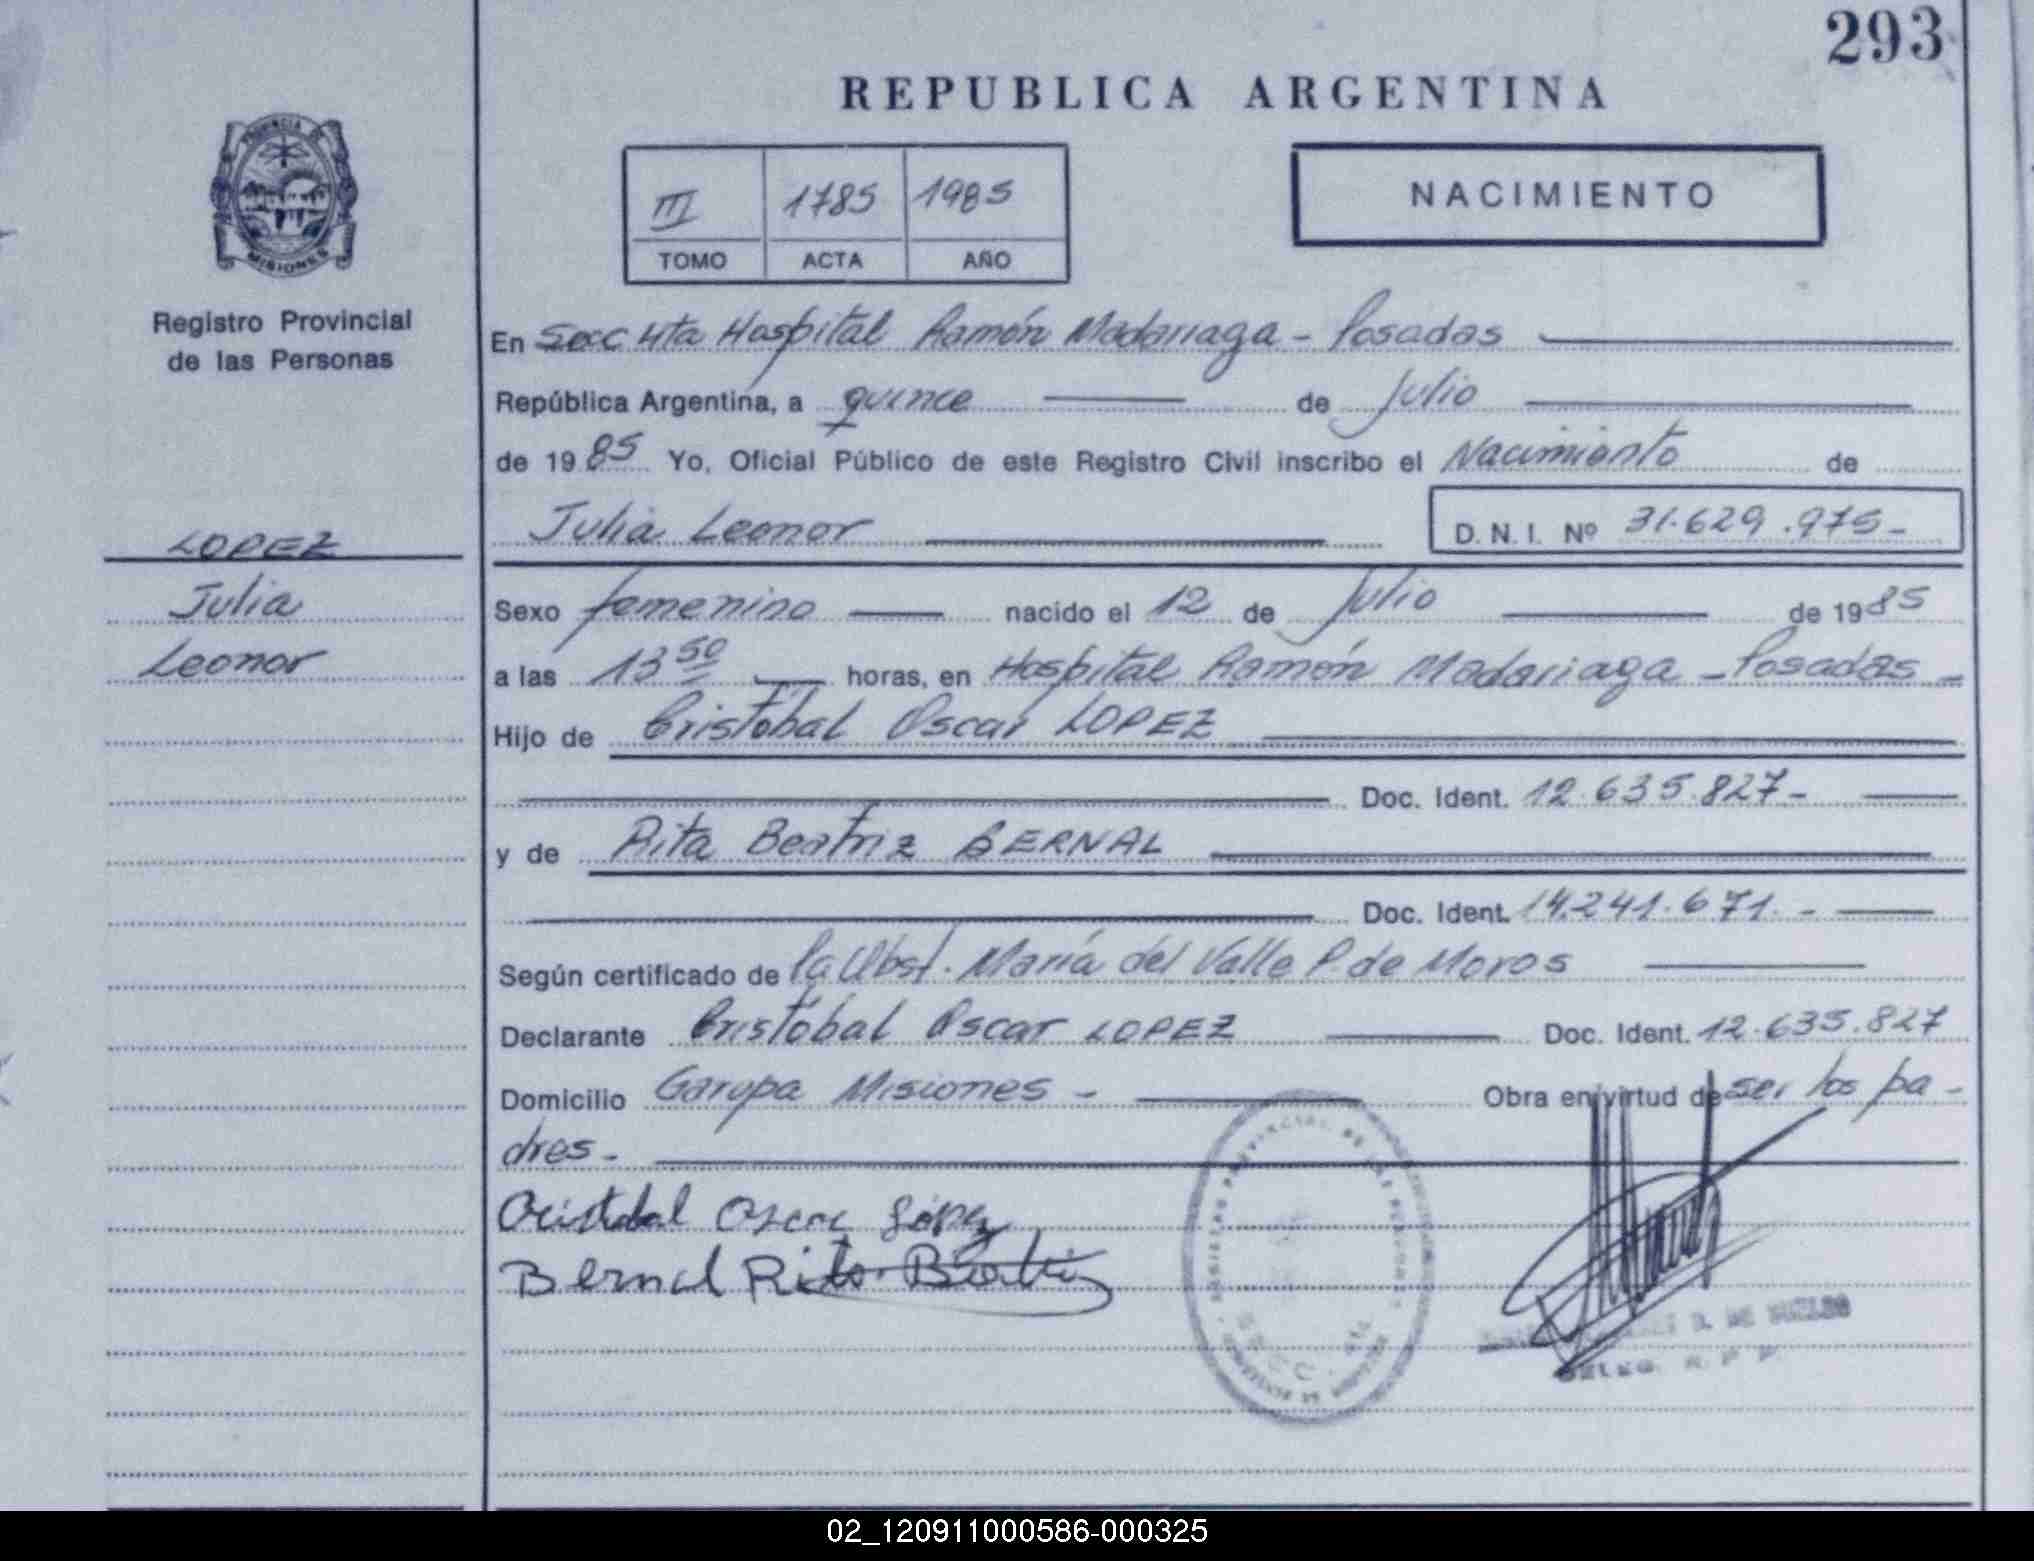 293
REPUBLICA ARGENTINA
PROVINCIA DE
MISIONES
III 1785 1985
TOMO ACTA AÑO
NACIMIENTO
Registro Provincial
de las Personas
LOPEZ
Julia
Leonor
En Secc 4ta Hospital Ramón Madariaga - Posadas
República Argentina, a quince de Julio
de 1985 Yo, Oficial Público de este Registro Civil inscribo el Nacimiento de
Julia Leonor D.N.I. Nº 31.629.975-
Sexo femenino nacido el 12 de Julio de 1985
a las 13 50 horas, en Hospital Ramón Madariaga - Posadas -
Hijo de Cristobal Oscar LOPEZ
Doc. Ident. 12.635.827-
y de Rita Beatriz BERNAL
Doc. Ident. 14.241.671.-
Según certificado de la Obst. María del Valle P. de Moros
Declarante Cristobal Oscar LOPEZ Doc. Ident. 12.635.827
Domicilio Garupa Misiones - Obra en virtud de ser los pa-
dres.-
Cristobal Oscar López
Bernal Rita Beatriz
D. DE
02_120911000586-000325